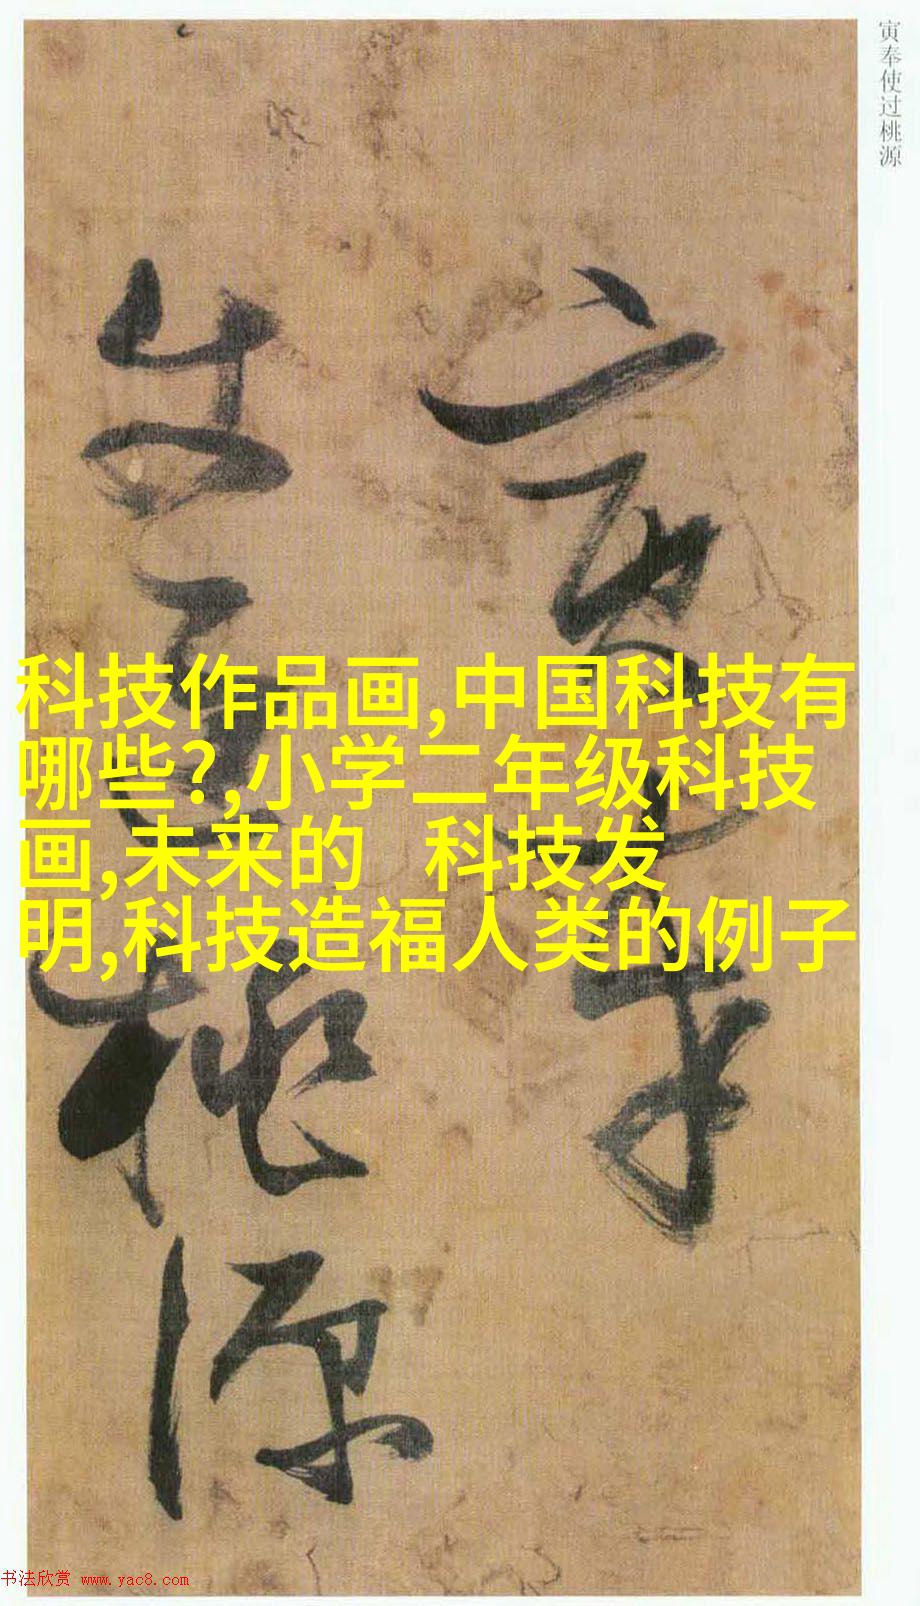 寅奉使过桃源
寅奉
使过桃源
科技作品画,中国科技有
哪些?,小学二年级科技
画,未来的 科技发
明,科技造福人类的例子
书法欣赏 www.yac8.com